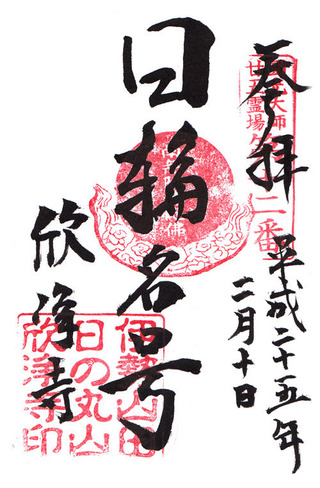 奉拝
大師
廿五霊場
二番
平成二十五年
二月十日
日輪名号
欣浄寺
伊勢山田
日の丸山
欣淨寺印